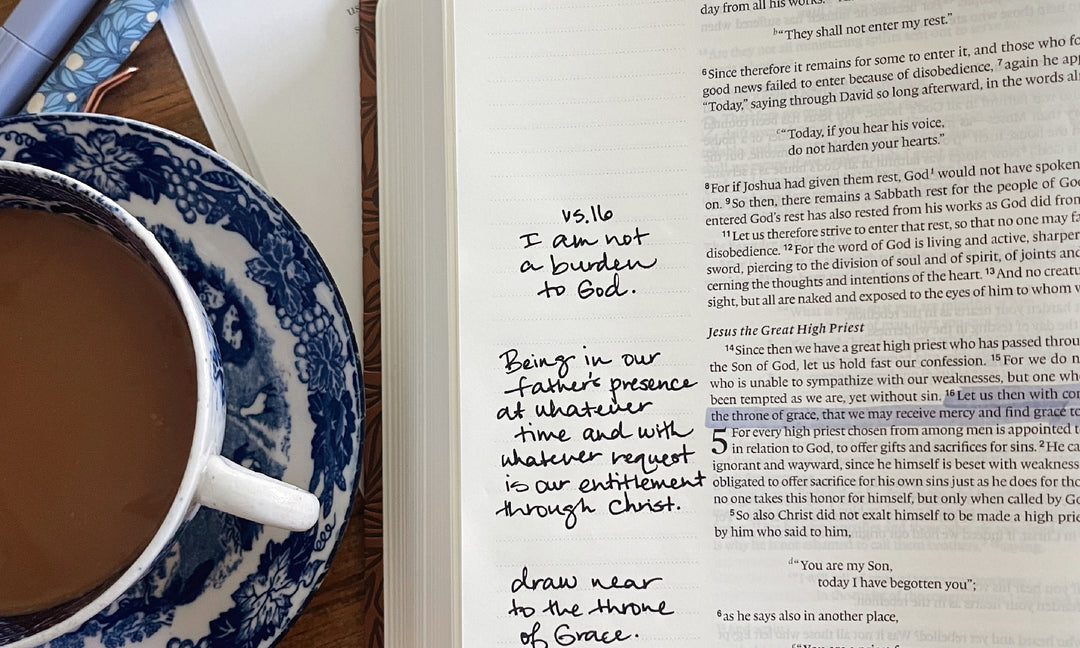 vs.16
I am not
a burden
to God.
Being in our
father's presence
at whatever
time and with
whatever request
is our entitlement
through Christ.
draw near
to the throne
of Grace.
day from all his works.
b"They shall not enter my rest."
6Since therefore it remains for some to enter it, and those who fo
good news failed to enter because of disobedience, 7again he app
"Today," saying through David so long afterward, in the words al
c"Today, if you hear his voice,
do not harden your hearts."
8For if Joshua had given them rest, God1 would not have spoken
on. 9So then, there remains a Sabbath rest for the people of Go
entered God's rest has also rested from his works as God did from
11Let us therefore strive to enter that rest, so that no one may fa
disobedience. 12For the word of God is living and active, sharper
sword, piercing to the division of soul and of spirit, of joints and
cerning the thoughts and intentions of the heart. 13And no creatu
sight, but all are naked and exposed to the eyes of him to whom w
Jesus the Great High Priest
14Since then we have a great high priest who has passed throu
the Son of God, let us hold fast our confession. 15For we do n
who is unable to sympathize with our weaknesses, but one wh
been tempted as we are, yet without sin. 16Let us then with con
the throne of grace, that we may receive mercy and find grace to
5 For every high priest chosen from among men is appointed t
in relation to God, to offer gifts and sacrifices for sins. 2He ca
ignorant and wayward, since he himself is beset with weakness
obligated to offer sacrifice for his own sins just as he does for tho
no one takes this honor for himself, but only when called by Go
5So also Christ did not exalt himself to be made a high prie
by him who said to him,
d"You are my Son,
today I have begotten you";
6as he says also in another place,